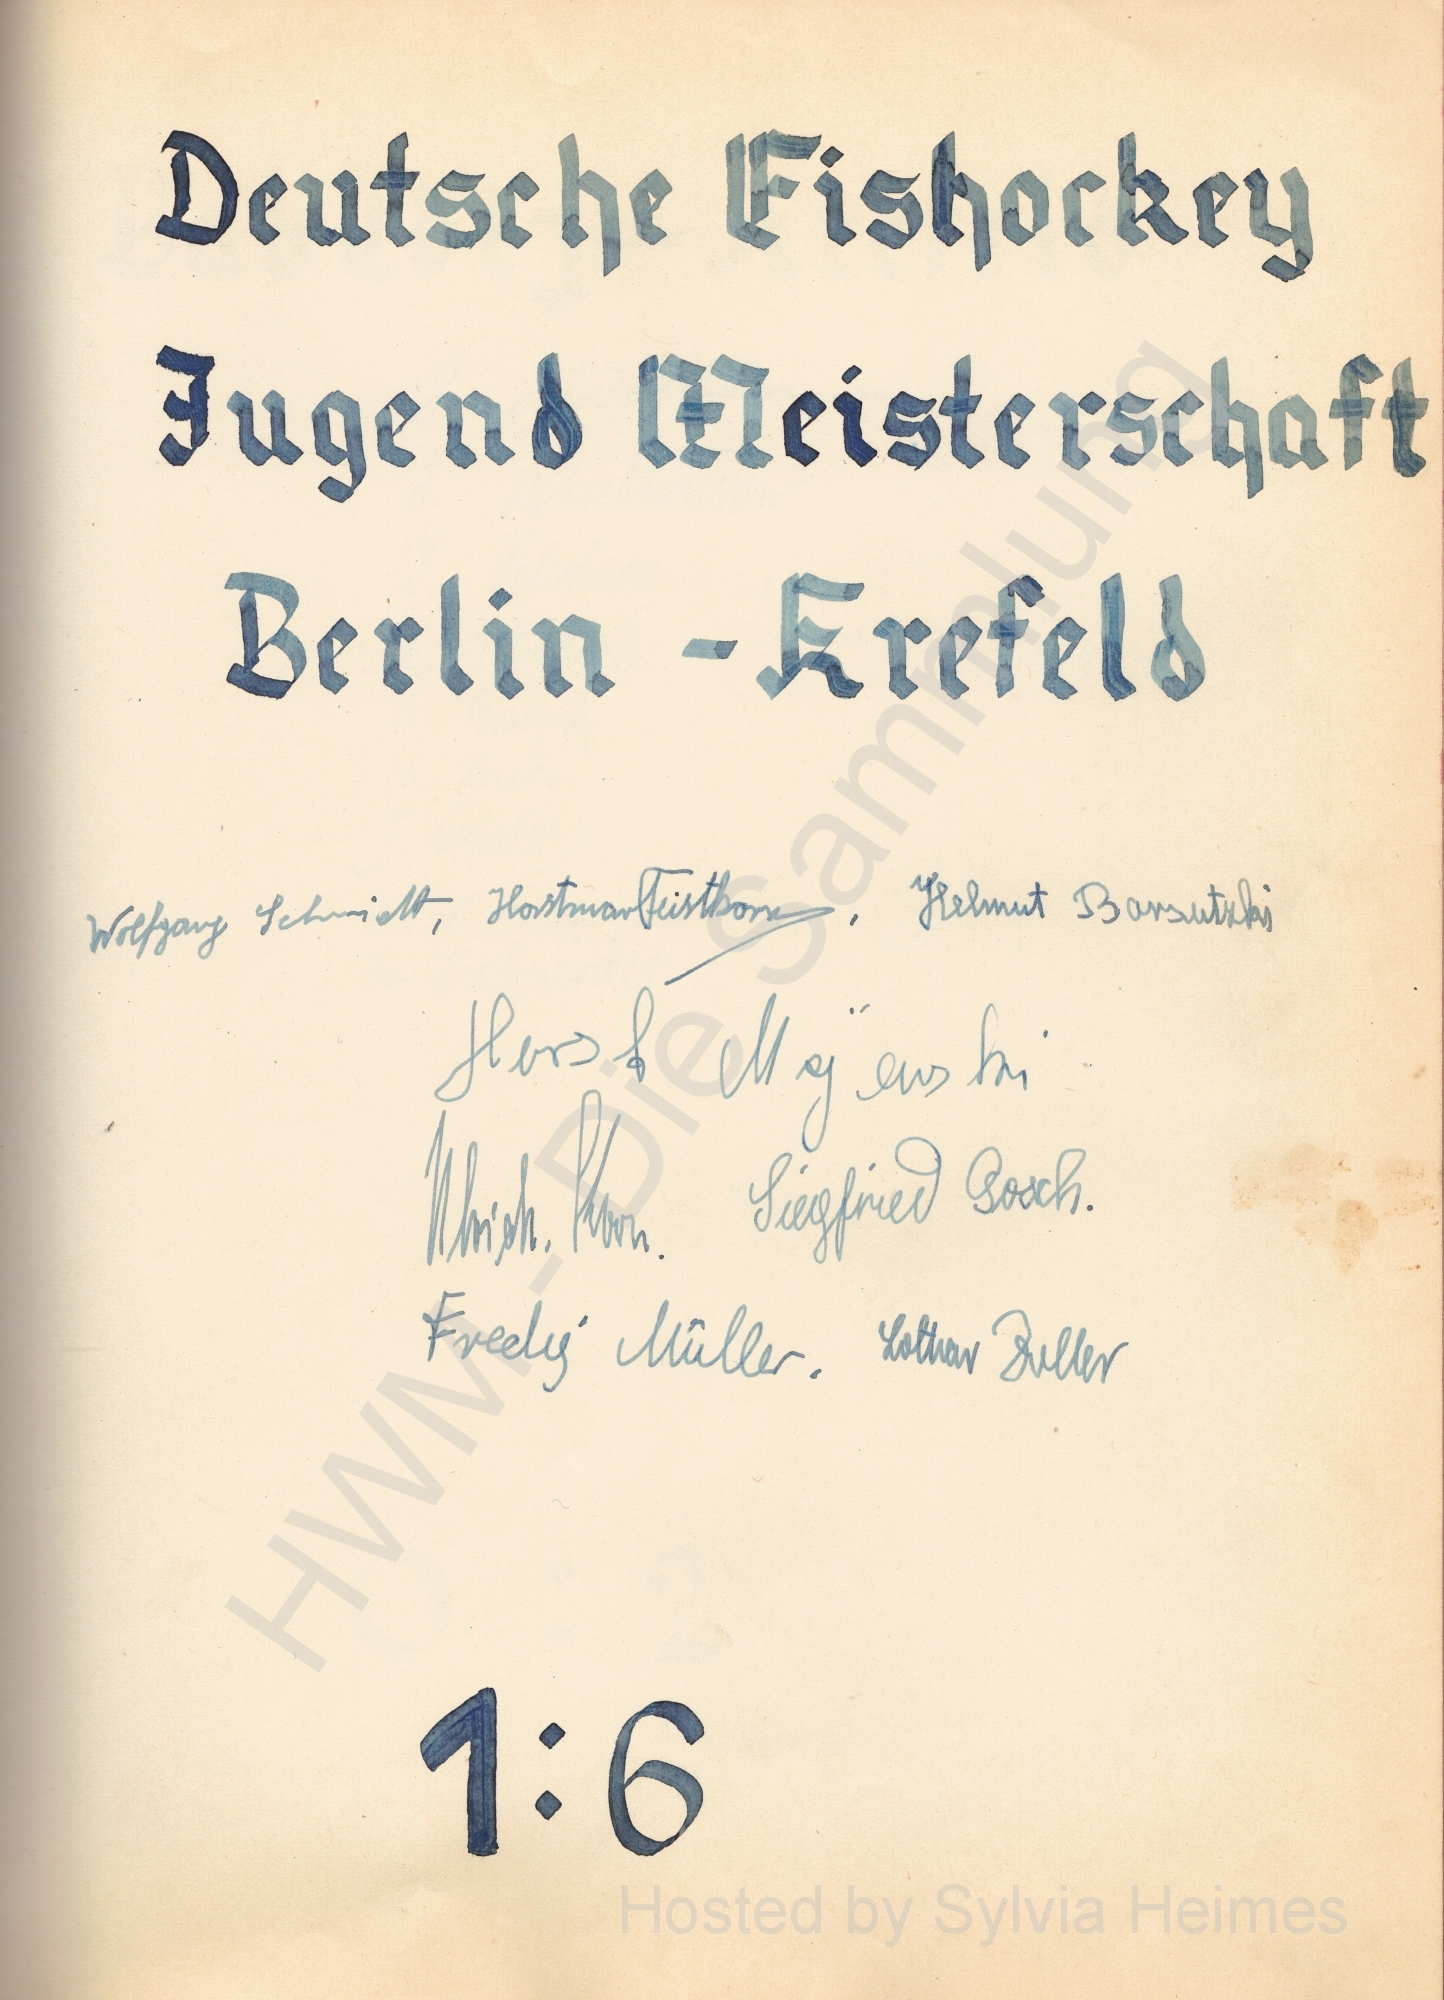 Deutsche Eishockey
Jugend Meisterschaft
Berlin - Krefeld
Wolfgang Schmidt, Horstmar Feistkorn, Helmut Barsutzki
Horst
Ulrich. Siegfried Gosch.
Fredy Müller. Lothar Zuller
1:6
HWM - Die Sammlung
Hosted by Sylvia Heimes